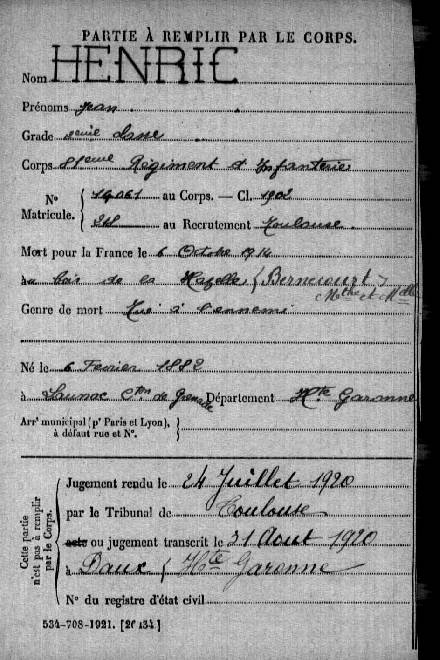 PARTIE À REMPLIR PAR LE CORPS.
Nom HENRIC
Prénoms Jean
Grade 2eme classe
Corps 81eme Régiment d'Infanterie
N° Matricule. { 14061 au Corps. — Cl. 1902
au Recrutement Toulouse.
Mort pour la France le 6 Octobre 1914
au bois de la Hazelle (Bernecourt)
Mthe et Mlle
Genre de mort Tué à l'ennemi
Né le 6 Fevrier 1882
à Launac Cton de Grenade Département Hte Garonne
Arrt municipal (pr Paris et Lyon), à défaut rue et N°.
Cette partie n'est pas à remplir par le Corps.
Jugement rendu le 24 Juillet 1920
par le Tribunal de Toulouse
acte ou jugement transcrit le 31 Aout 1920
à Daux (Hte Garonne
N° du registre d'état civil
534-708-1921. [26434]